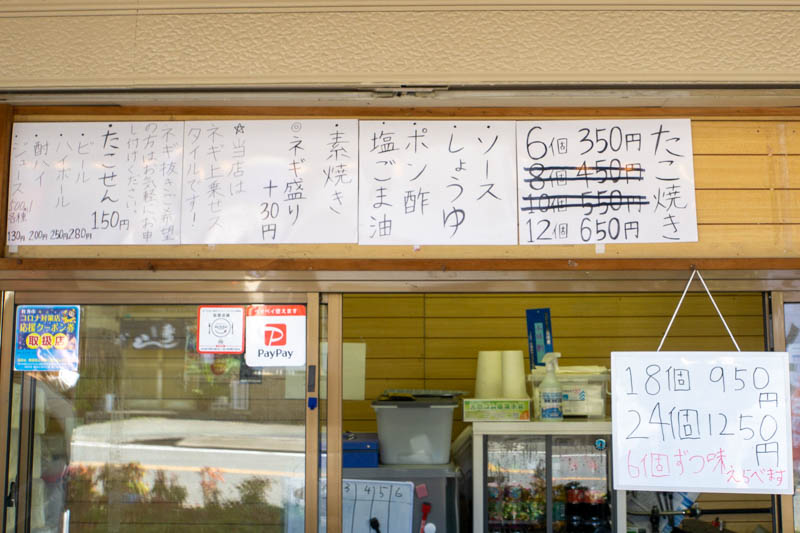 たこ焼き
6個 350円
8個 450円
10個 550円
12個 650円
・ソース
・しょうゆ
・ポン酢
・塩ごま油
・素焼き
◎ネギ盛り
+30円
☆当店は
ネギ上乗せス
タイルです!
ネギ抜きご希望
の方はお気軽にお申
し付けください。
・たこせん 150円
・ビール 280円
・ハイボール 250円
・酎ハイ 200円
・ジュース 500ml各種 130円
コロナ対策店
応援クーポン券
取扱店
ペイペイ使えます
PayPay
18個 950円
24個 1250円
6個ずつ味えらべます
3 4 5 6